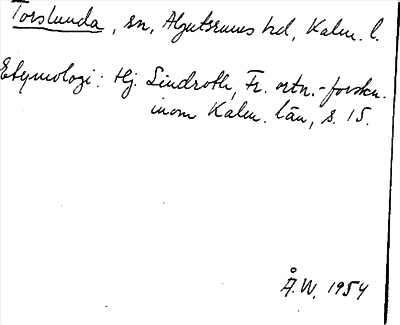 Torslunda, sn, Algutsrums hd, Kalm. l.
Etymologi: Hj. Lindroth, Fr. ortn.-forskn.
inom Kalm. län, s. 15.
Å.W. 1954